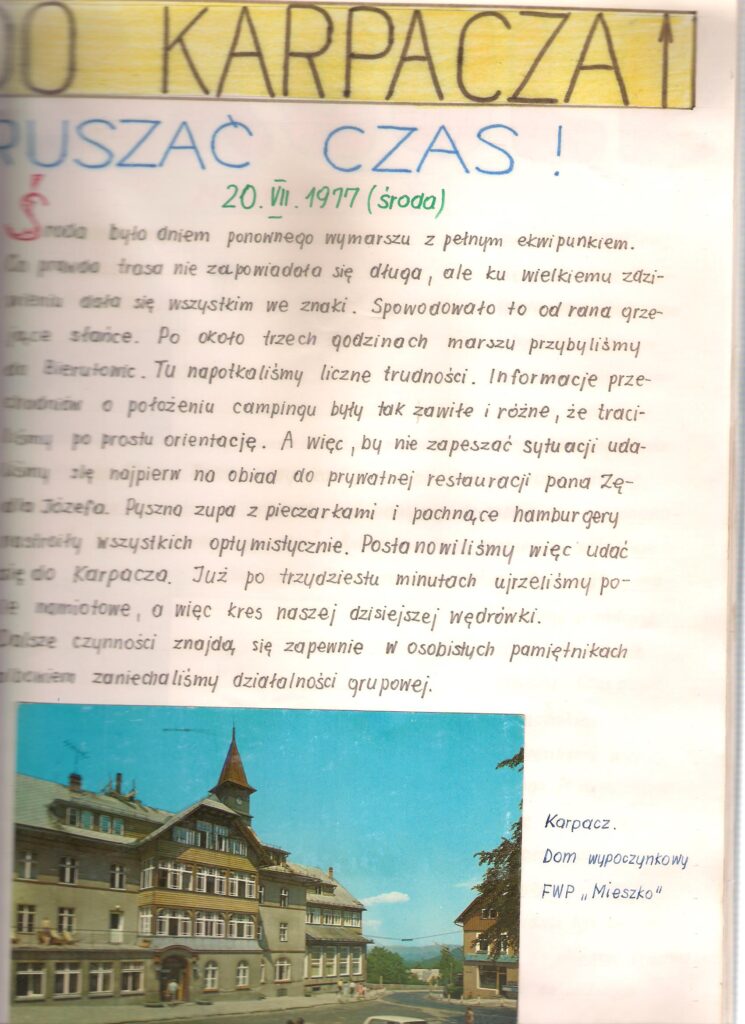 DO KARPACZA
RUSZAĆ CZAS!
20.VII.1977 (środa)
Środa była dniem ponownego wymarszu z pełnym ekwipunkiem.
Co prawda trasa nie zapowiadała się długa, ale ku wielkiemu zdzi-
wieniu dała się wszystkim we znaki. Spowodowało to od rana grze-
jące słońce. Po około trzech godzinach marszu przybyliśmy
do Bierutowic. Tu napotkaliśmy liczne trudności. Informacje prze-
chodniów o położeniu campingu były tak zawiłe i różne, że traci-
liśmy po prostu orientację. A więc, by nie zapeszać sytuacji uda-
liśmy się najpierw na obiad do prywatnej restauracji pana Zę-
dla Józefa. Pyszna zupa z pieczarkami i pachnące hamburgery
nastroiły wszystkich optymistycznie. Postanowiliśmy więc udać
się do Karpacza. Już po trzydziestu minutach ujrzeliśmy po-
le namiotowe, a więc kres naszej dzisiejszej wędrówki.
Dalsze czynności znajdą się zapewnie w osobistych pamiętnikach
albowiem zaniechaliśmy działalności grupowej.
Karpacz.
Dom wypoczynkowy
FWP „Mieszko"